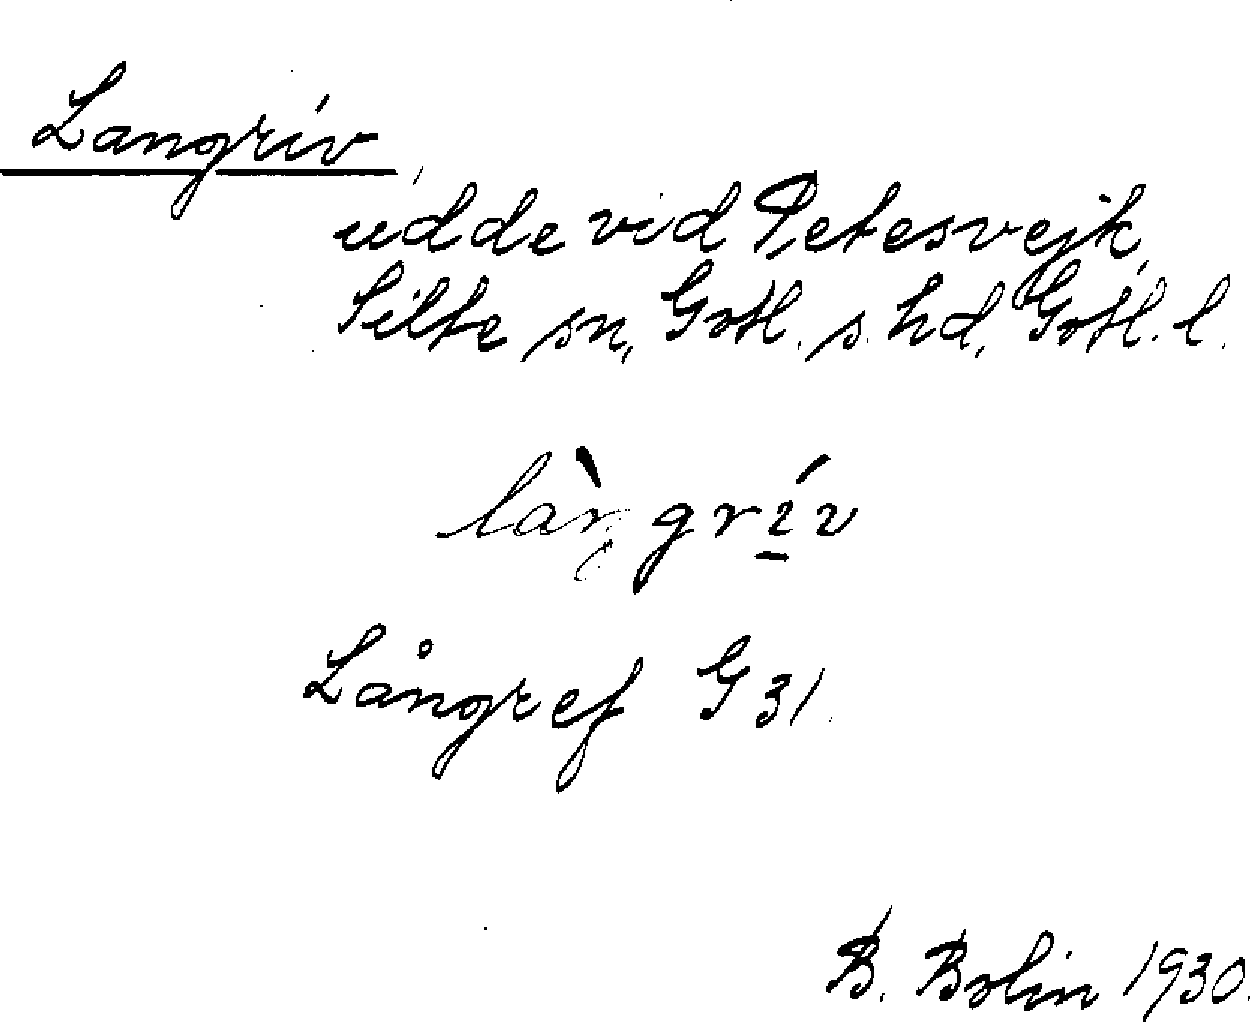 Langriv,
udde vid Petesvejk,
Silte sn, Gotl. s. hd, Gotl. l.
làŋgrív
Långref G 31.
B. Bolin 1930.